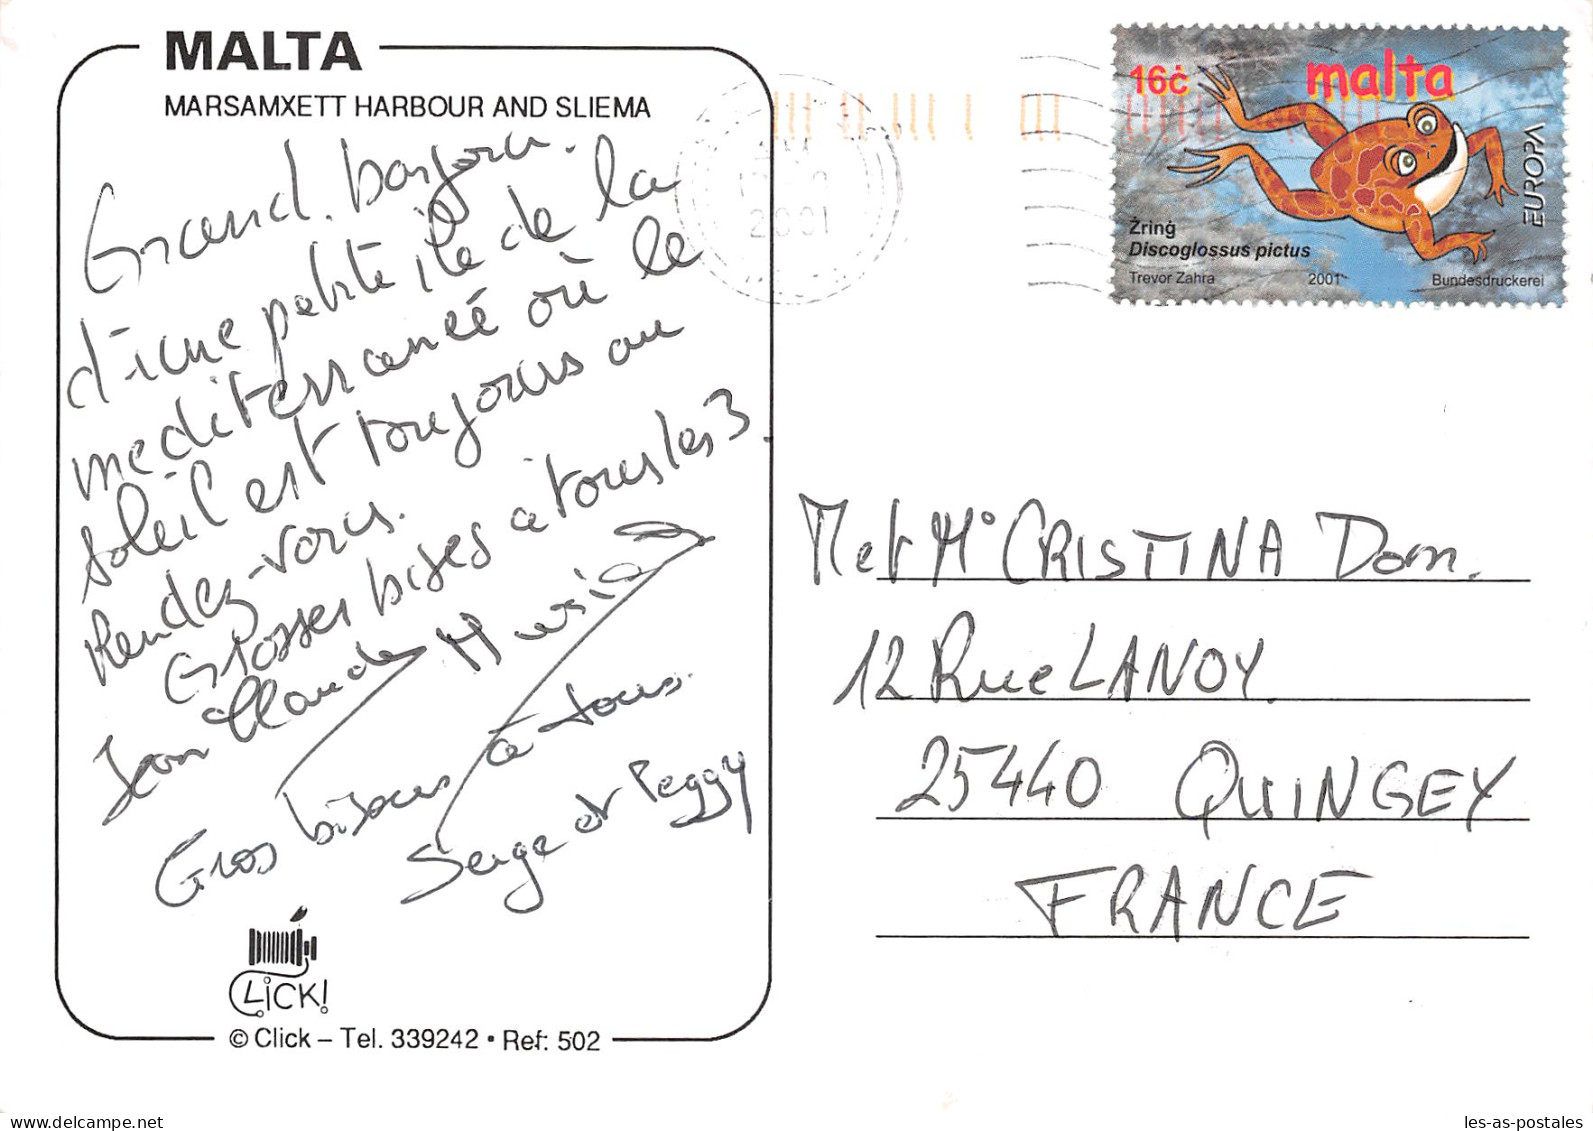 MALTA
MARSAMXETT HARBOUR AND SLIEMA
Grand bonjour
d'une petite île de la
mediterranée où le
soleil est toujours au
Rendez-vous.
Grosses bises a tous les 3.
Jean Claude
Gros bisous à tous.
Serge et Peggy
CLICK!
© Click – Tel. 339242 • Ref: 502
2001
16ċ
malta
EUROPA
Żrinġ
Discoglossus pictus
Trevor Zahra 2001 Bundesdruckerei
M et Mᵉ CRISTINA Dom.
12 Rue LANOY
25440 QUINGEY
FRANCE
www.delcampe.net
les-as-postales